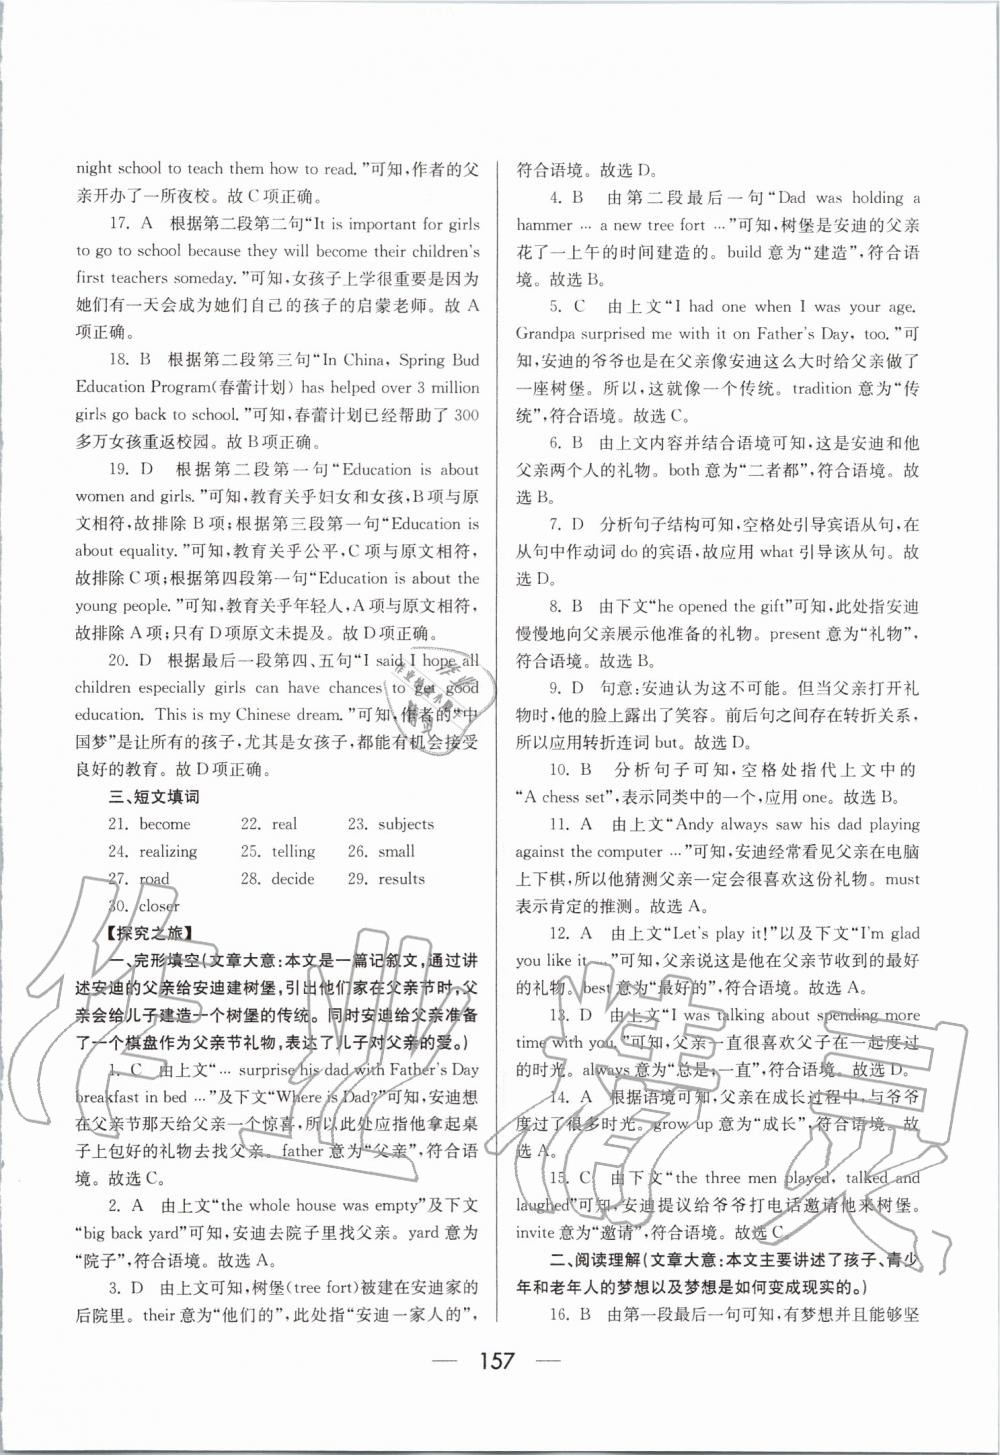 night school to teach them how to read. ”可知,作者的父
亲开办了一所夜校。故 C 项正确。
17. A 根据第二段第二句“It is important for girls
to go to school because they will become their children's
first teachers someday. ”可知,女孩子上学很重要是因为
她们有一天会成为她们自己的孩子的启蒙老师。故 A
项正确。
18. B 根据第二段第三句“In China, Spring Bud
Education Program(春蕾计划) has helped over 3 million
girls go back to school. ”可知,春蕾计划已经帮助了 300
多万女孩重返校园。故 B 项正确。
19. D 根据第二段第一句“Education is about
women and girls. ”可知,教育关乎妇女和女孩,B 项与原
文相符,故排除 B 项;根据第三段第一句“Education is
about equality. ”可知,教育关乎公平,C 项与原文相符,
故排除 C 项;根据第四段第一句“Education is about the
young people. ”可知,教育关乎年轻人,A 项与原文相符,
故排除 A 项;只有 D 项原文未提及。故 D 项正确。
20. D 根据最后一段第四、五句“I said I hope all
children especially girls can have chances to get good
education. This is my Chinese dream. ”可知,作者的“中
国梦”是让所有的孩子,尤其是女孩子,都能有机会接受
良好的教育。故 D 项正确。
三、短文填词
21. become 22. real 23. subjects
24. realizing 25. telling 26. small
27. road 28. decide 29. results
30. closer
【探究之旅】
一、完形填空(文章大意:本文是一篇记叙文,通过讲
述安迪的父亲给安迪建树堡,引出他们家在父亲节时,父
亲会给儿子建造一个树堡的传统。同时安迪给父亲准备
了一个棋盘作为父亲节礼物,表达了儿子对父亲的爱。)
1. C 由上文“… surprise his dad with Father's Day
breakfast in bed …”及下文“Where is Dad?”可知,安迪想
在父亲节那天给父亲一个惊喜,所以此处应指他拿起桌
子上包好的礼物去找父亲。father 意为“父亲”,符合语
境。故选 C。
2. A 由上文“the whole house was empty”及下文
“big back yard”可知,安迪去院子里找父亲。yard 意为
“院子”,符合语境。故选 A。
3. D 由上文可知,树堡(tree fort)被建在安迪家的
后院里。their 意为“他们的”,此处指“安迪一家人的”,
符合语境。故选 D。
4. B 由第二段最后一句“Dad was holding a
hammer … a new tree fort …”可知,树堡是安迪的父亲
花了一上午的时间建造的。build 意为“建造”,符合语
境。故选 B。
5. C 由上文“I had one when I was your age.
Grandpa surprised me with it on Father's Day, too. ”可
知,安迪的爷爷也是在父亲像安迪这么大时给父亲做了
一座树堡。所以,这就像一个传统。tradition 意为“传
统”,符合语境。故选 C。
6. B 由上文内容并结合语境可知,这是安迪和他
父亲两个人的礼物。both 意为“二者都”,符合语境。故
选 B。
7. D 分析句子结构可知,空格处引导宾语从句,在
从句中作动词 do 的宾语,故应用 what 引导该从句。故
选 D。
8. B 由下文“he opened the gift”可知,此处指安迪
慢慢地向父亲展示他准备的礼物。present 意为“礼物”,
符合语境。故选 B。
9. D 句意:安迪认为这不可能。但当父亲打开礼
物时,他的脸上露出了笑容。前后句之间存在转折关系,
所以应用转折连词 but。故选 D。
10. B 分析句子可知,空格处指代上文中的
“A chess set”,表示同类中的一个,应用 one。故选 B。
11. A 由上文“Andy always saw his dad playing
against the computer …”可知,安迪经常看见父亲在电脑
上下棋,所以他猜测父亲一定会很喜欢这份礼物。must
表示肯定的推测。故选 A。
12. A 由上文“Let's play it!”以及下文“I'm glad
you like it …”可知,父亲说这是他在父亲节收到的最好
的礼物。best 意为“最好的”,符合语境。故选 A。
13. D 由上文“I was talking about spending more
time with you. ”可知,父亲一直很喜欢父子在一起度过
的时光。always 意为“总是;一直”,符合语境。故选 D。
14. A 根据语境可知,父亲在成长过程中,与爷爷
度过了很多时光。grow up 意为“成长”,符合语境。故
选 A。
15. C 由下文“the three men played, talked and
laughed”可知,安迪提议给爷爷打电话邀请他来树堡。
invite 意为“邀请”,符合语境。故选 C。
二、阅读理解(文章大意:本文主要讲述了孩子、青少
年和老年人的梦想以及梦想是如何变成现实的。)
16. B 由第一段最后一句可知,有梦想并且能够坚
— 157 —
作业精灵